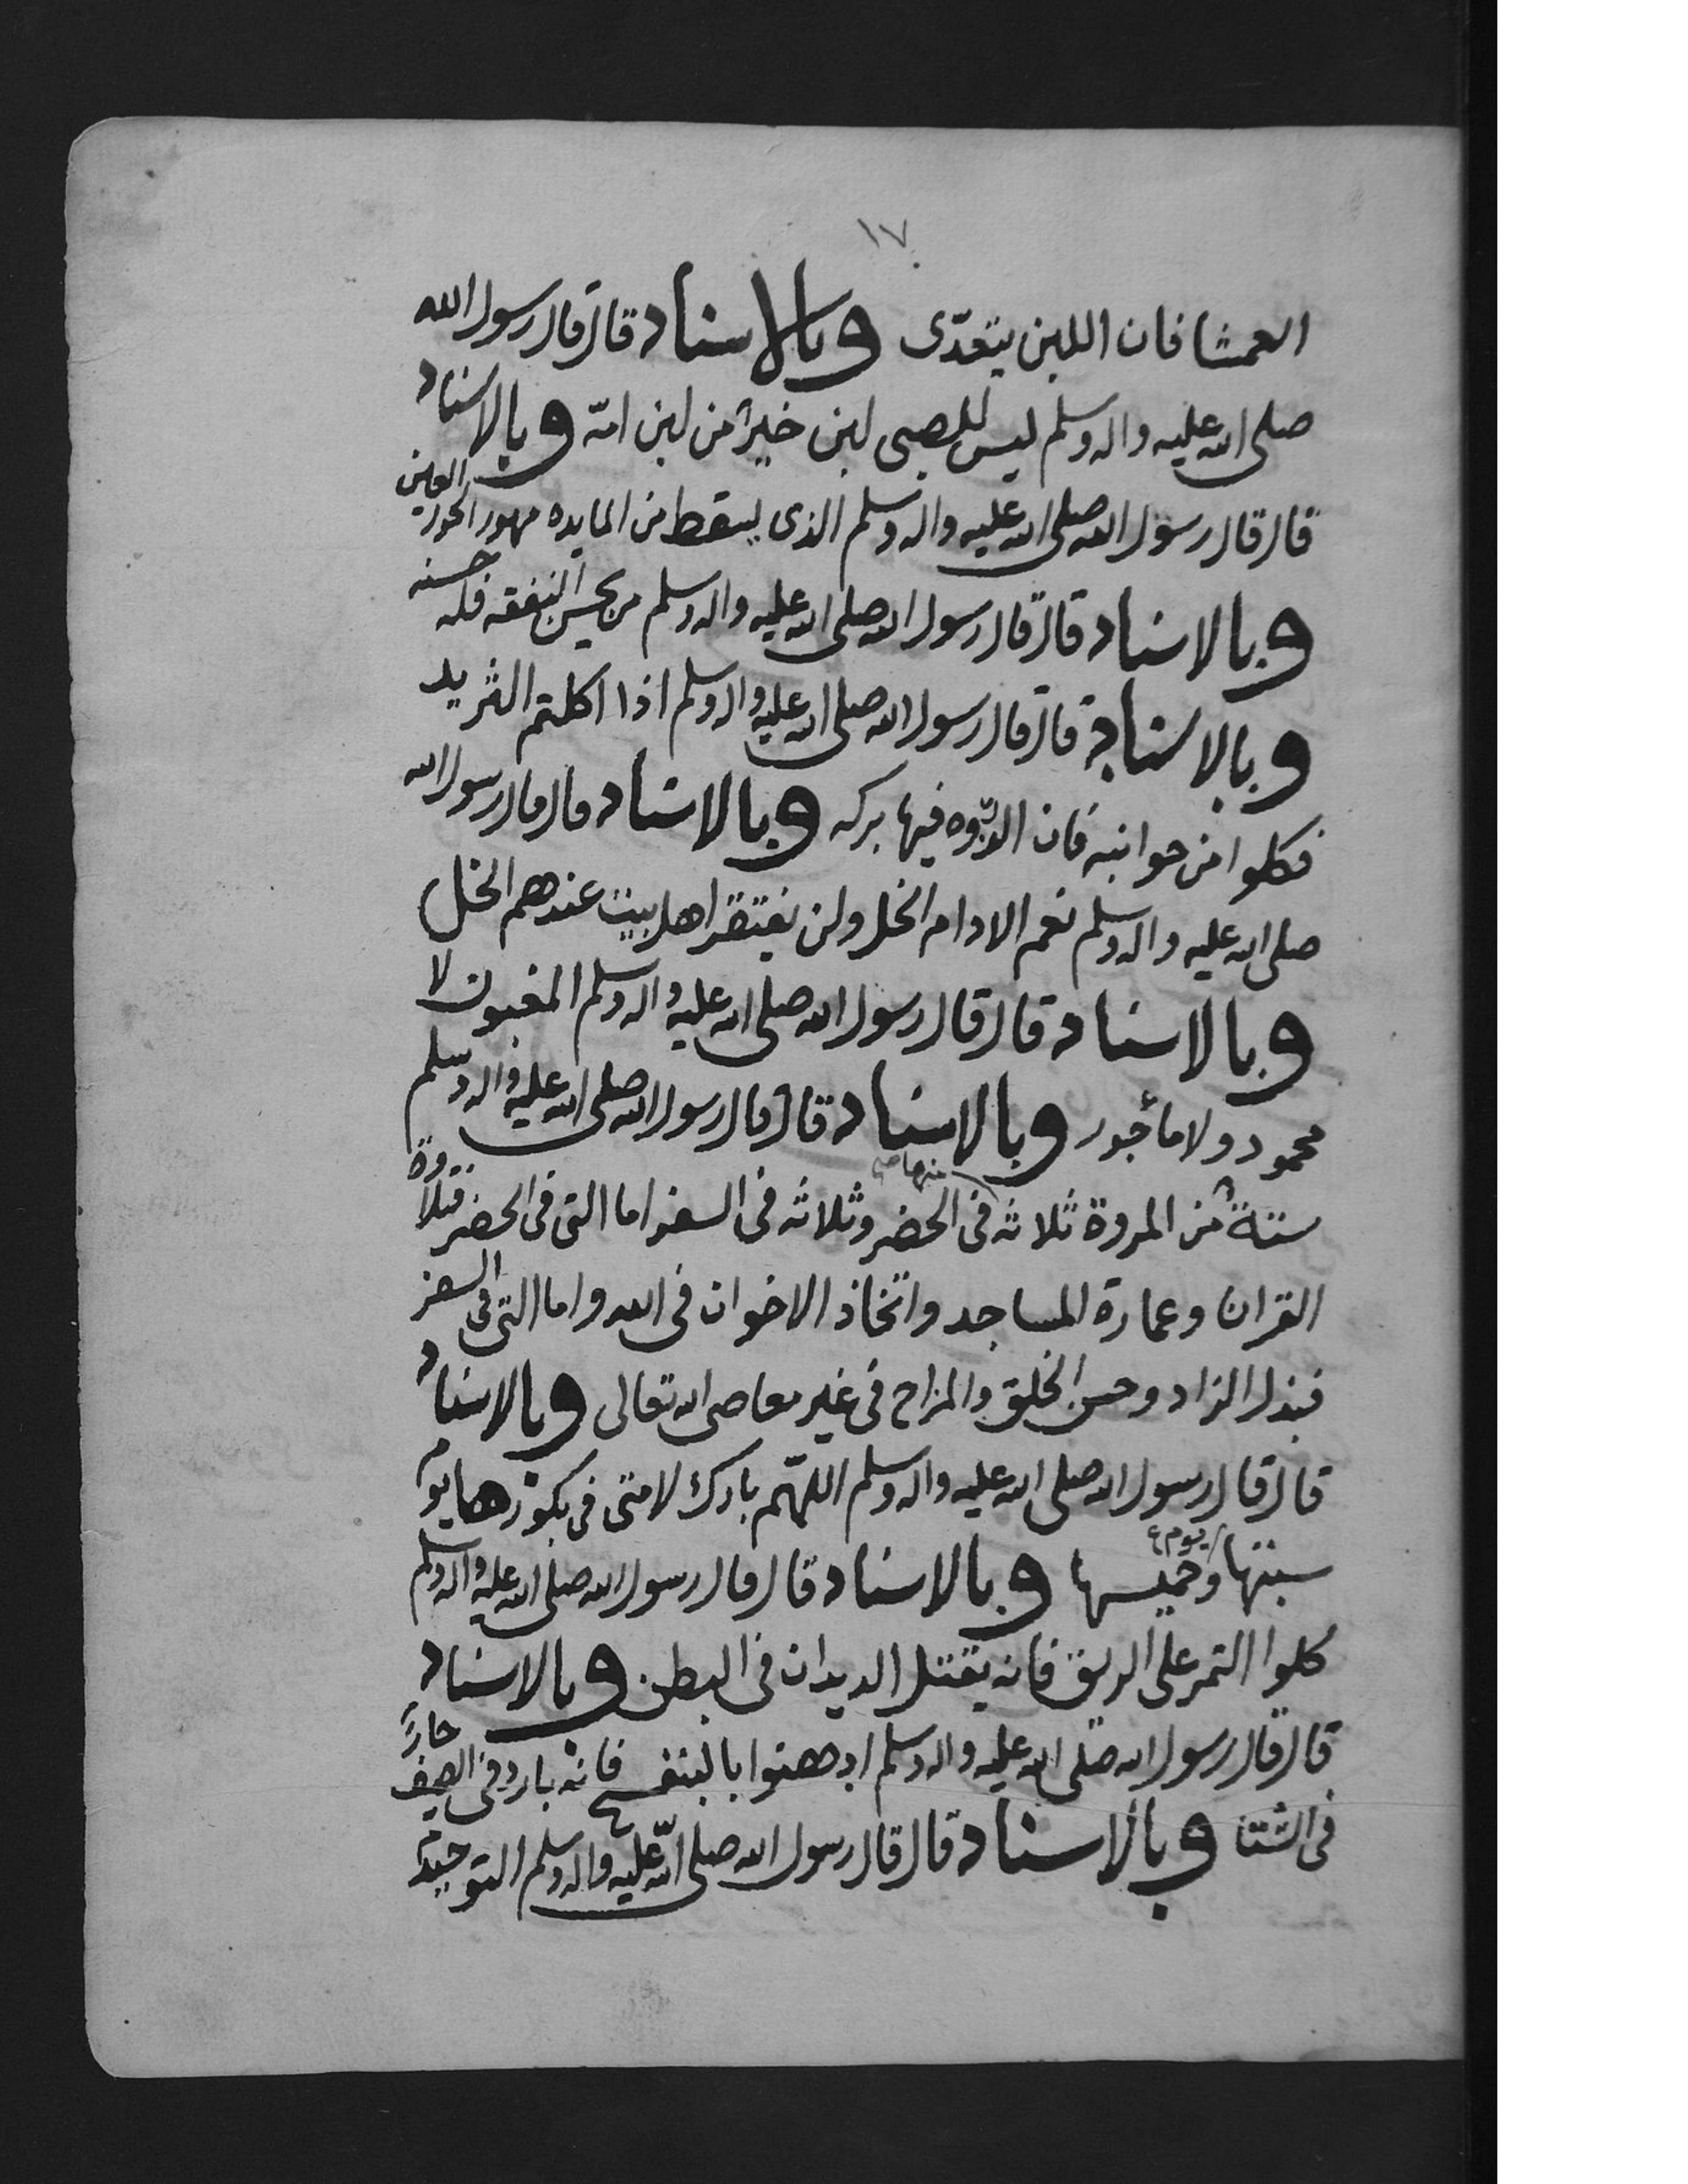 ١٧
العمشا فان اللبن يتعدّى وبالاسناد قال قال رسول الله
صلى الله عليه واله وسلم ليس للصبى لبن خيرٌ من لبن امّه وبالاسناد
قال قال رسول الله صلى الله عليه واله وسلم الذى يسقط من المايده مهور الحور العين
وبالاسناد قال قال رسول الله صلى الله عليه واله وسلم من يحسن النفقه فله حسنه
وبالاسناد قال قال رسول الله صلى الله عليه واله وسلم اذا اكلتم الثريد
فكلوا من جوانبه فان الذروه فيها بركه وبالاسناد قال قال رسول الله
صلى الله عليه واله وسلم نعم الادام الخل ولن يفتقر اهل بيت عندهم الخل
وبالاسناد قال قال رسول الله صلى الله عليه واله وسلم المغبون لا
محمود ولا مأجور وبالاسناد قال قال رسول الله صلى الله عليه واله وسلم
ستة من المروة ثلاثه منها فى الحضر وثلاثه فى السفر اما التى فى الحضر فتلاوة
القران وعمارة المساجد واتخاذ الاخوان فى الله واما التى فى السفر
فبذل الزاد وحسن الخلق والمزاح فى غير معاصى الله تعالى وبالاسناد
قال قال رسول الله صلى الله عليه واله وسلم اللهّم بارك لامتى فى بكورها يوم
سبتها ويوم خميسها وبالاسناد قال قال رسول الله صلى الله عليه واله وسلم
كلوا التمر على الريق فانه يقتل الديدان فى البطن وبالاسناد
قال قال رسول الله صلى الله عليه واله وسلم ادهنوا بالبنفسج فانه بارد فى الصيف حارٌ
فى الشتا وبالاسناد قال قال رسول الله صلى الله عليه واله وسلم التوحيد